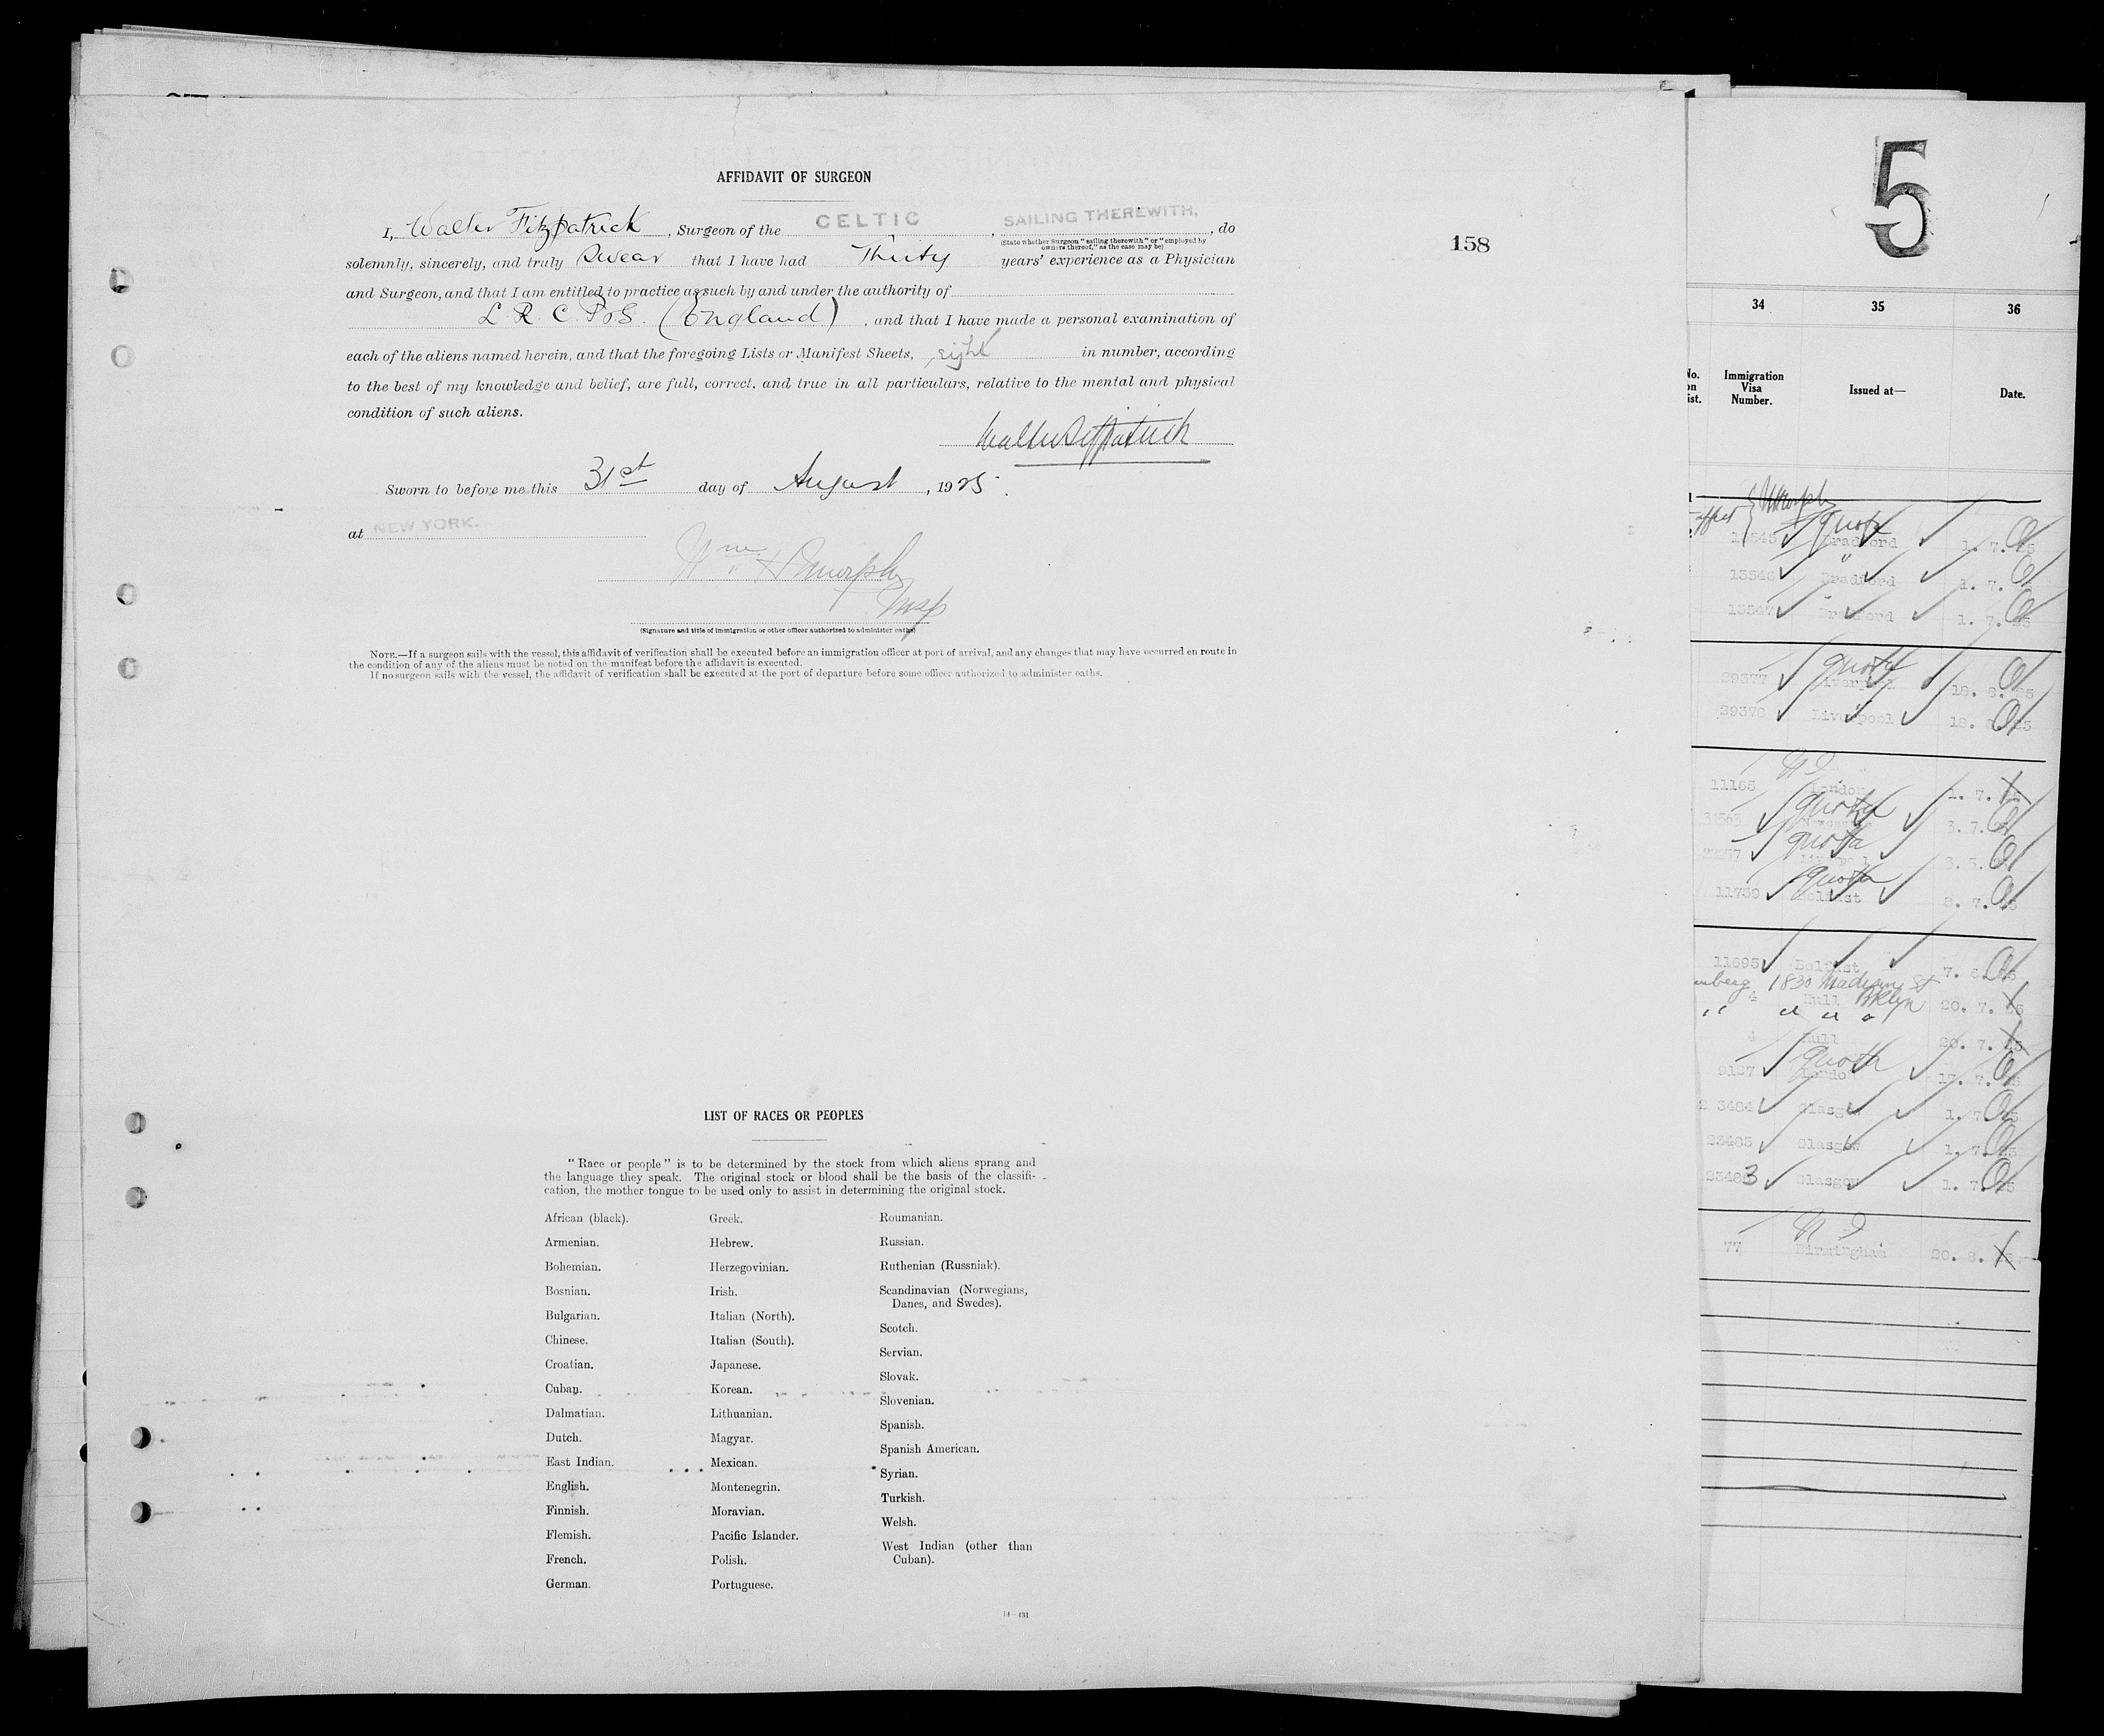 AFFIDAVIT OF SURGEON
I, Walter Fitzpatrick, Surgeon of the CELTIC, SAILING THEREWITH, do
(State whether Surgeon "sailing therewith" or "employed by
owners thereof," as the case may be)
solemnly, sincerely, and truly Swear that I have had Thirty years' experience as a Physician
and Surgeon, and that I am entitled to practice as such by and under the authority of
L. R. C. P & S. (England), and that I have made a personal examination of
each of the aliens named herein, and that the foregoing Lists or Manifest Sheets, eight in number, according
to the best of my knowledge and belief, are full, correct, and true in all particulars, relative to the mental and physical
condition of such aliens.
Walter Fitzpatrick
Sworn to before me this 31st day of August, 1925.
at NEW YORK.
Wm H Murphy
Insp
(Signature and title of immigration or other officer authorized to administer oaths)
NOTE.—If a surgeon sails with the vessel, this affidavit of verification shall be executed before an immigration officer at port of arrival, and any changes that may have occurred en route in
the condition of any of the aliens must be noted on the manifest before the affidavit is executed.
If no surgeon sails with the vessel, the affidavit of verification shall be executed at the port of departure before some officer authorized to administer oaths.
158
LIST OF RACES OR PEOPLES
"Race or people" is to be determined by the stock from which aliens sprang and
the language they speak. The original stock or blood shall be the basis of the classifi-
cation, the mother tongue to be used only to assist in determining the original stock.
African (black).
Armenian.
Bohemian.
Bosnian.
Bulgarian.
Chinese.
Croatian.
Cuban.
Dalmatian.
Dutch.
East Indian.
English.
Finnish.
Flemish.
French.
German.
Greek.
Hebrew.
Herzegovinian.
Irish.
Italian (North).
Italian (South).
Japanese.
Korean.
Lithuanian.
Magyar.
Mexican.
Montenegrin.
Moravian.
Pacific Islander.
Polish.
Portuguese.
Roumanian.
Russian.
Ruthenian (Russniak).
Scandinavian (Norwegians,
Danes, and Swedes).
Scotch.
Servian.
Slovak.
Slovenian.
Spanish.
Spanish American.
Syrian.
Turkish.
Welsh.
West Indian (other than
Cuban).
14—431
5
34 35 36
Immigration
Visa
Number.
Issued at—
Date.
quota
Bradford 1. 7. 25
13546 Bradford 1. 7.
13547 Bradford 1. 7. 25
quota
29377 Liverpool 18. 8. 25
29378 Liverpool 18. 25
11165 London 1. 7. 25
quota
3. 7.
quota
3. 5.
quota
11739 Belfast 8. 7. 25
11695 Belfast 7. 25
1830 Madison St
Bklyn
4 Hull 20. 7. 25
4 Hull 20. 7. 25
quota
9127 London 17. 7. 25
3484 Glasgow 1. 7. 25
23485 Glasgow 1. 7. 25
23483 Glasgow 1. 7. 25
77 Birmingham 20. 8.